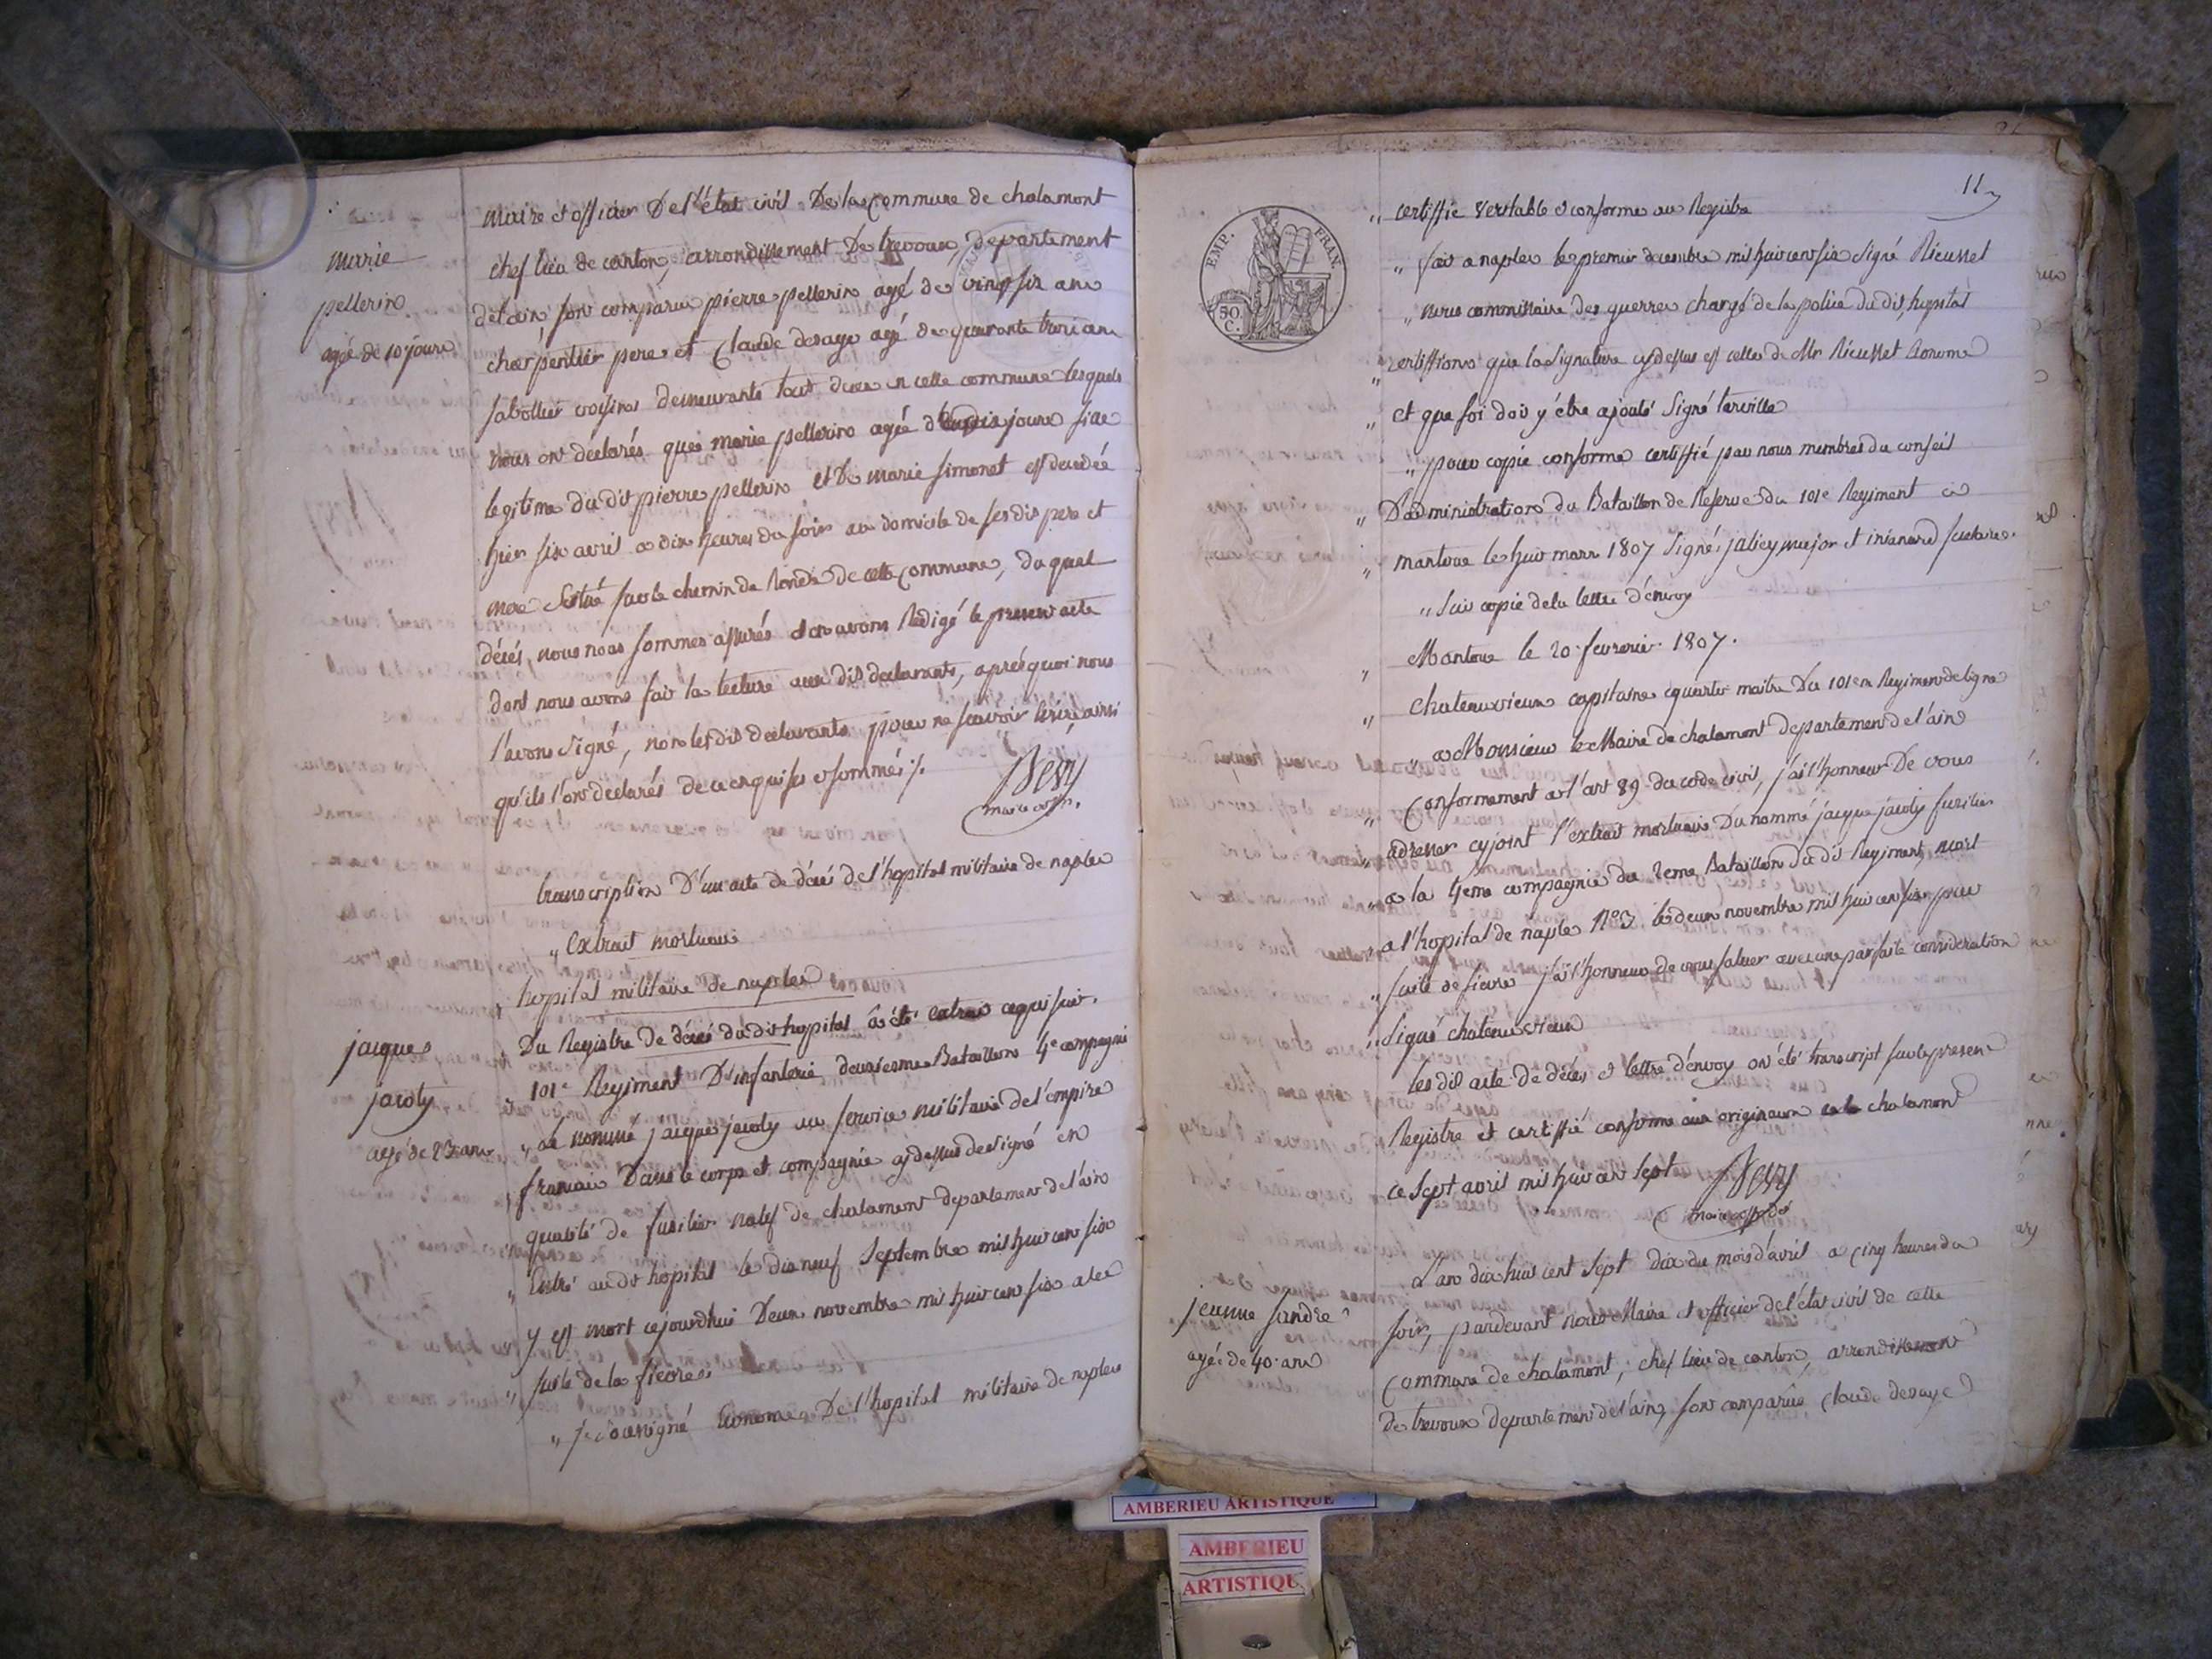 maire et officier De l'état civil De la Commune de chalamont
chef lieu de canton, arrondissement De trevoux, departement
marie
pellerin
agée de 10 jours
de l'ain sont comparus pierre pellerin agé de vingt six ans
charpentier pere et Claude desaye agé de quarante trois ans
sabottier voisins demeurants tous deux en cette commune lesquels
nous ont declarés que marie pellerin agée de dix jours fille
legitime du dit pierre pellerin et De marie simonet est decedée
hier six avril a dix heures du soir au domicile de ses dis pere et
mere situé sur le chemin de Ronde de cette Commune, du quel
décés, nous nous sommes assurés et en avons Rédigé le present acte
dont nous avons fait la lecture aux dis declarants, aprés quoi nous
l'avons signé, non les dis declarants pour ne sçavoir écrire ainsi
qu'ils l'ont declarés de ce enquis et sommés ./.
maire
transcription D'un acte de décés de l'hopital militaire de naples
" Extrait mortuaire
" hopital militaire de naples
jacques
jacoty
agé de 23 ans
Du Registre de décés du dit hopital a été extrait ce qui suit.
" 101e Regiment D'infanterie deuxieme Bataillon 4e compagnie
" Le nommé jacque jacoty au service militaire de l'empire
" francais Dans le corps et compagnie cy dessus designé en
qualité de fusilier natif de chalamont departement de l'ain
" Entré au dit hopital le dix neuf septembre mil huit cent six
y est mort cejourdhui Deux novembre mil huit cent six a
" suite de la fievre.
" je soussigné Econome De l'hopital militaire de naples
11
EMP. FRAN.
50
C.
" certiffie veritable et conforme au Registre
" fait a naples le premier decembre mil huit cent six signé Rieusset
" nous commissaire des guerres chargé de la police du dit hopital
" certiffions que la signature cy dessus est celle de Mr Rieusset Econome
" et que foi doit y être ajouté signé terville
" pour copie conforme certiffié par nous membres du conseil
" D'administration du Bataillon de Reserve du 101e Regiment a
" mantoue le huit mars 1807 signé: major et secretaire.
" suit copie de la lettre d'envoy
" Mantoue le 20 fevrier 1807.
" Chateauvieux capitaine quartier maitre Du 101em Regiment de ligne
" a Monsieur le Maire de chalamont departement de l'ain
" Conformement a l'art 89 du code civil, j'ai l'honneur De vous
" adresser cy joint l'extrait mortuaire Du nommé jacque jacoty fusilier
" a la 4eme compagnie du 2eme Bataillon du dit Regiment mort
" a l'hopital de naples No 3 le deux novembre mil huit cent six par
" suite de fievre j'ai l'honneur de vous saluer avec une parfaite consideration
" signé chateauvieux
les dis acte de décés et lettre d'envoy ont été transcript sur le present
Registre et certiffié conforme aux originaux a chalamont
ce sept avril mil huit cent sept
maire
L'an dix huit cent sept dix du mois d'avril a cinq heures du
jeanne sandre
agée de 40 ans
soir, pardevant nous Maire et officier de l'état civil de cette
Commune de chalamont, chef lieu de canton, arrondissement
De trevoux departement de l'ain, sont comparus Claude desaye
AMBERIEU ARTISTIQUE
AMBERIEU
ARTISTIQUE